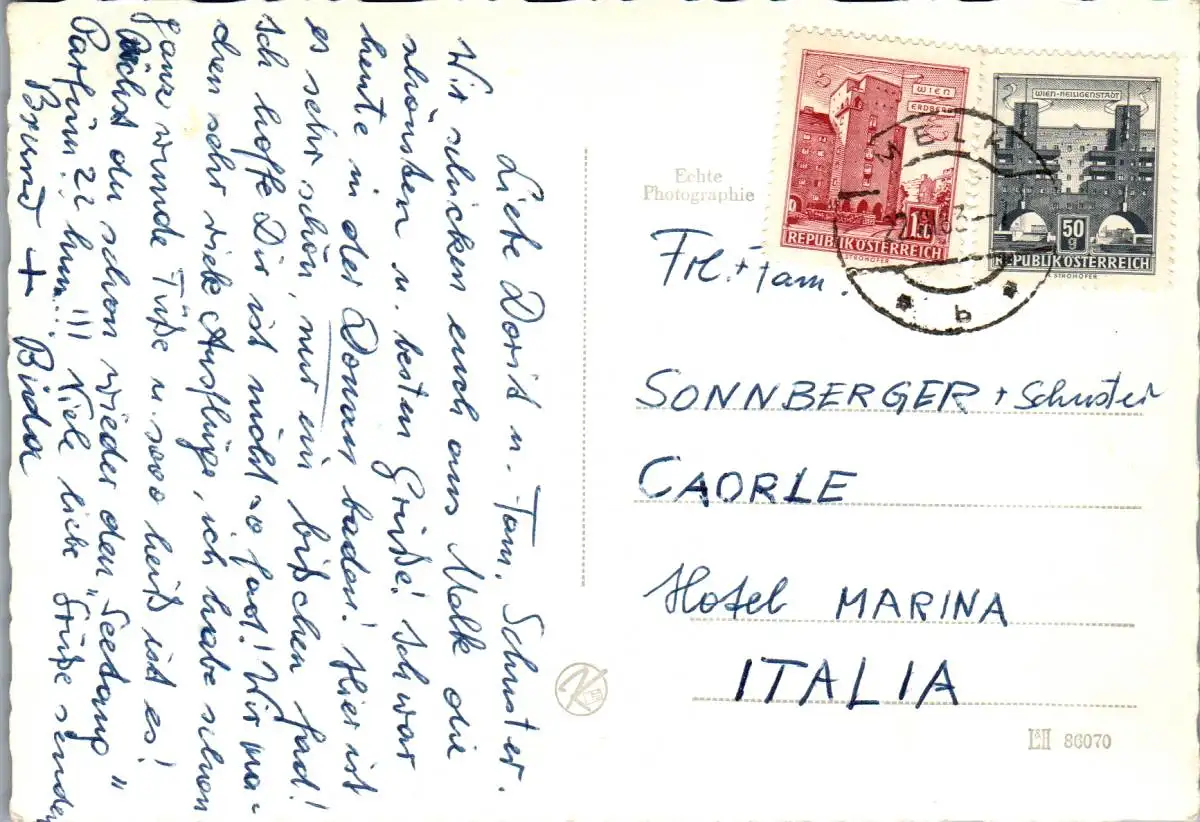 Liebe Dorist u. Fam. Schuster.
Wir schicken euch aus Melk die
schönsten u. besten Grüße! Ich war
heute in der Donau baden! Hier ist
es sehr schön, nur ein bißchen fad!
Ich hoffe Dir ist nicht so fad! Wir ma-
chen sehr viele Ausflüge, ich habe schon
ganz wunde Füße u. sooo heiß ist es!
du schon wieder den "Seetang"
Parfüm? hm... !!! Viele liebe Grüße senden
+
Echte
Photographie
Frl. + Fam.
SONNBERGER + Schuster
CAORLE
Hotel MARINA
ITALIA
WIEN
ERDBERG
REPUBLIK ÖSTERREICH
STROHOFER
WIEN-HEILIGENSTADT
50
g
REPUBLIK ÖSTERREICH
STROHOFER
MELK
b
L&H 86070